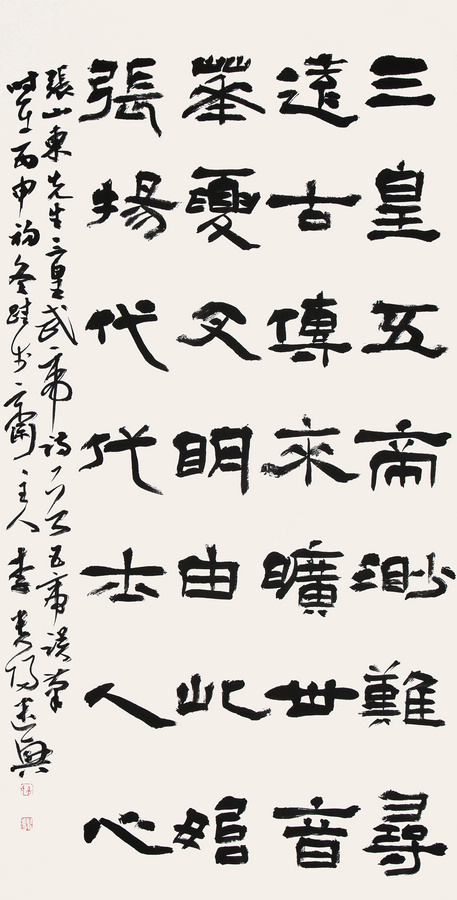 三皇五帝渺難尋
遠古傳來曠世音
華夏文明由此始
張揚代代士人心
張山東先生三皇武帝詩一首 五帝誤筆
時在丙申初冬 主人李貴陽書興